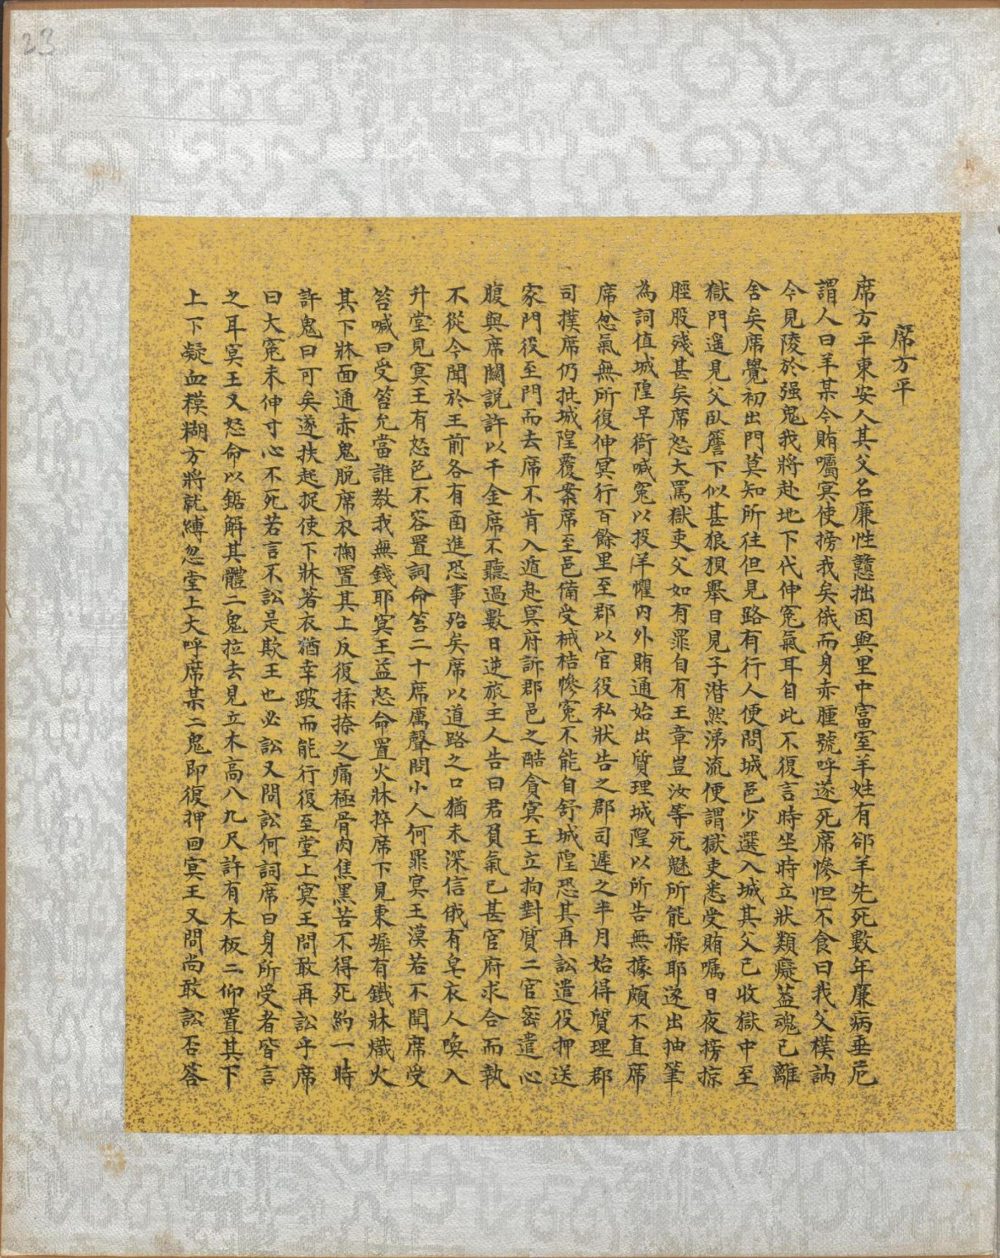 23
席方平
席方平東安人其父名廉性戇拙因與里中富室羊姓有郤羊先死數年廉病垂危
謂人曰羊某今賄囑冥使搒我矣俄而身赤腫號呼遂死席慘怛不食曰我父樸訥
今見陵於强鬼我將赴地下代伸冤氣耳自此不復言時坐時立狀類癡葢魂已離
舍矣席覺初出門莫知所往但見路有行人便問城邑少選入城其父已收獄中至
獄門遥見父臥簷下似甚狼狽舉目見子潸然涕流便謂獄吏悉受賄嘱日夜搒掠
脛股殘甚矣席怒大罵獄吏父如有罪自有王章豈汝等死魅所能操耶遂出抽筆
為詞值城隍早衙喊冤以投羊懼内外賄通始出質理城隍以所告無據頗不直席
席忿氣無所復伸冥行百餘里至郡以官役私狀告之郡司遲之半月始得質理郡
司撲席仍批城隍覆案席至邑備受械梏慘冤不能自舒城隍恐其再訟遣役押送
家門役至門而去席不肯入遁赴冥府訴郡邑之酷貪冥王立拘對質二官密遣心
腹與席關說許以千金席不聽過數日逆旅主人告曰君負氣已甚官府求合而執
不從今聞於王前各有函進恐事殆矣席以道路之口猶未深信俄有皂衣人喚入
升堂見冥王有怒色不容置詞命笞二十席厲聲問小人何罪冥王漠若不聞席受
笞喊曰受笞允當誰教我無錢耶冥王益怒命置火牀捽席下見東墀有鐵牀熾火
其下牀面通赤鬼脫席衣掬置其上反復揉捺之痛極骨肉焦黑苦不得死約一時
許鬼曰可矣遂扶起捉使下牀著衣猶幸跛而能行復至堂上冥王問敢再訟乎席
曰大冤未伸寸心不死若言不訟是欺王也必訟又問訟何詞席曰身所受者皆言
之耳冥王又怒命以鋸解其體二鬼拉去見立木高八九尺許有木板二仰置其下
上下凝血糢糊方將就縛忽堂上大呼席某二鬼即復押回冥王又問尚敢訟否答